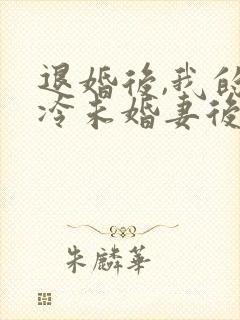 退婚後,我的
冷未婚妻後
朱麟華